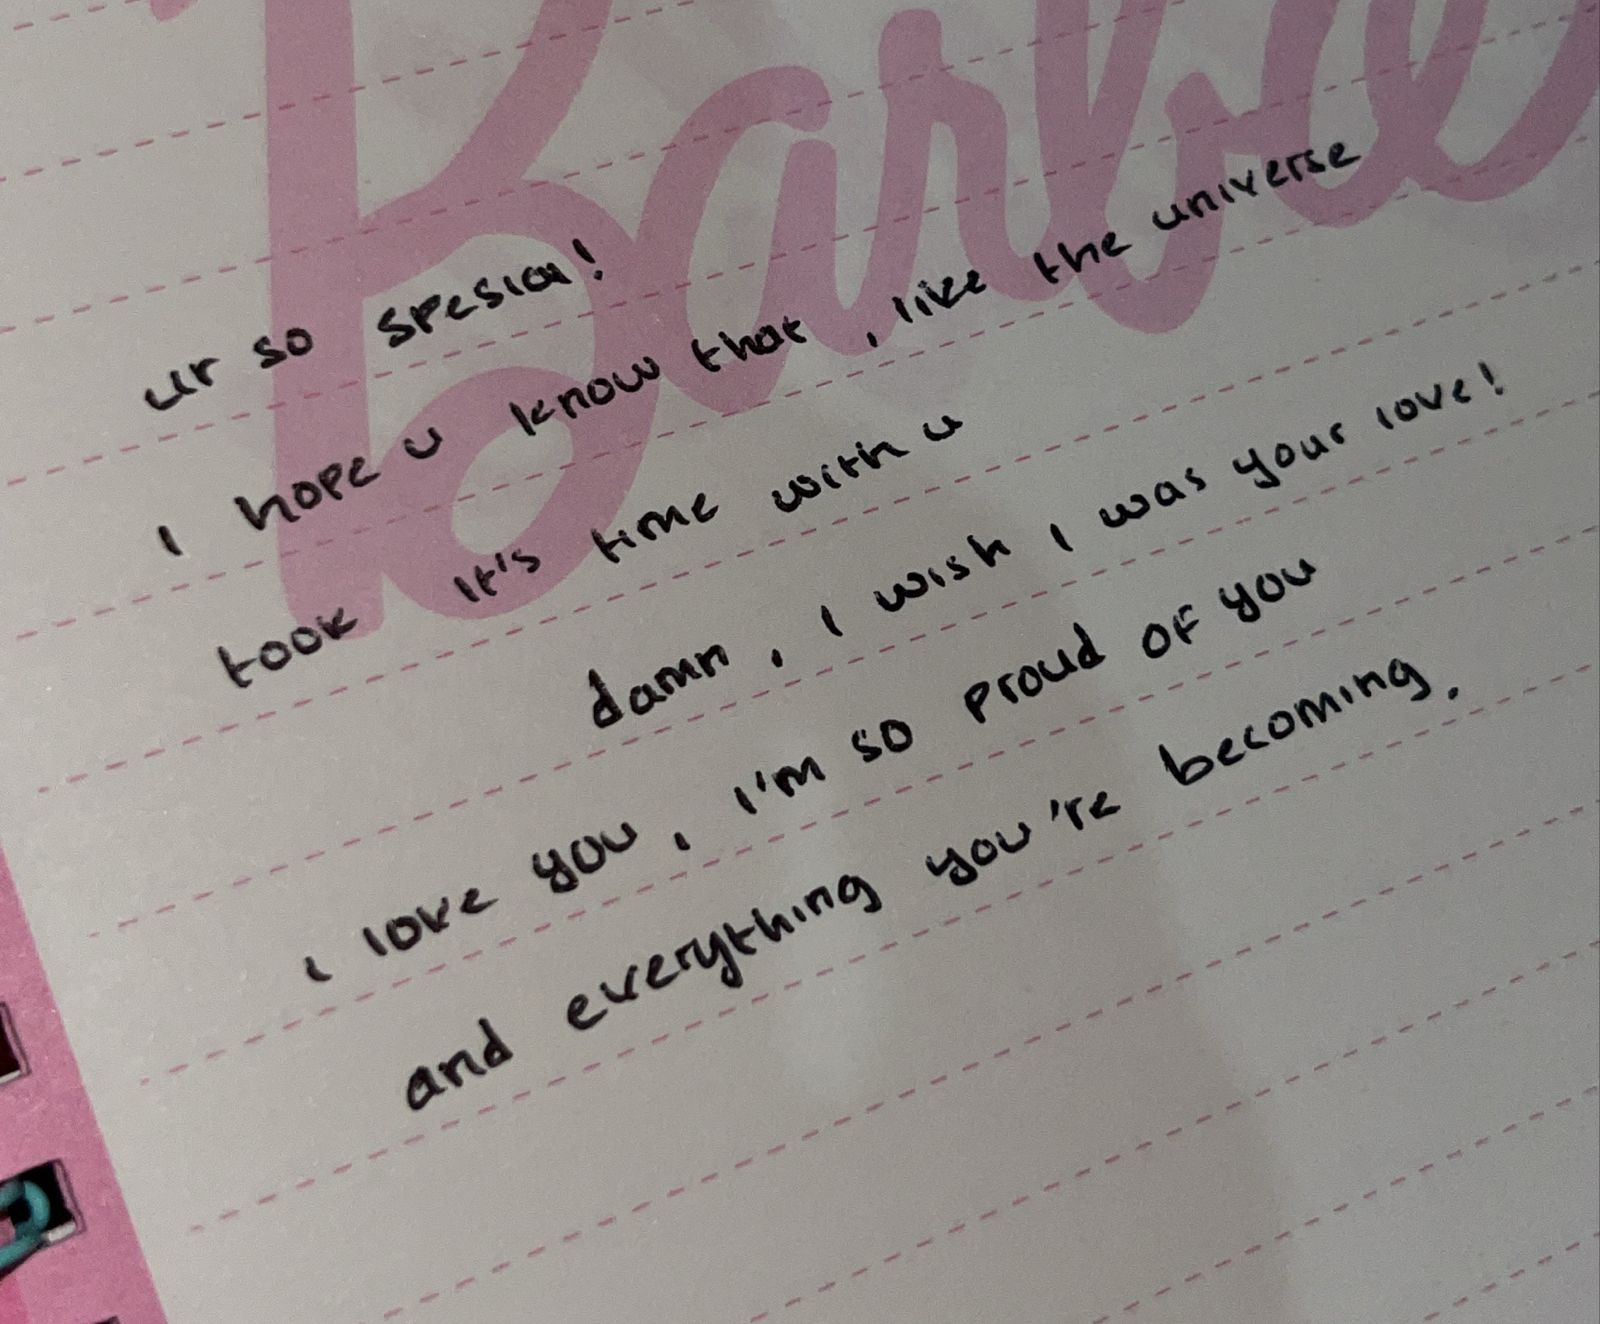 Barbie
ur so spesial!
I hope u know that, like the universe
took it's time with u
damn, I wish I was your love!
I love you, I'm so proud of you
and everything you're becoming.